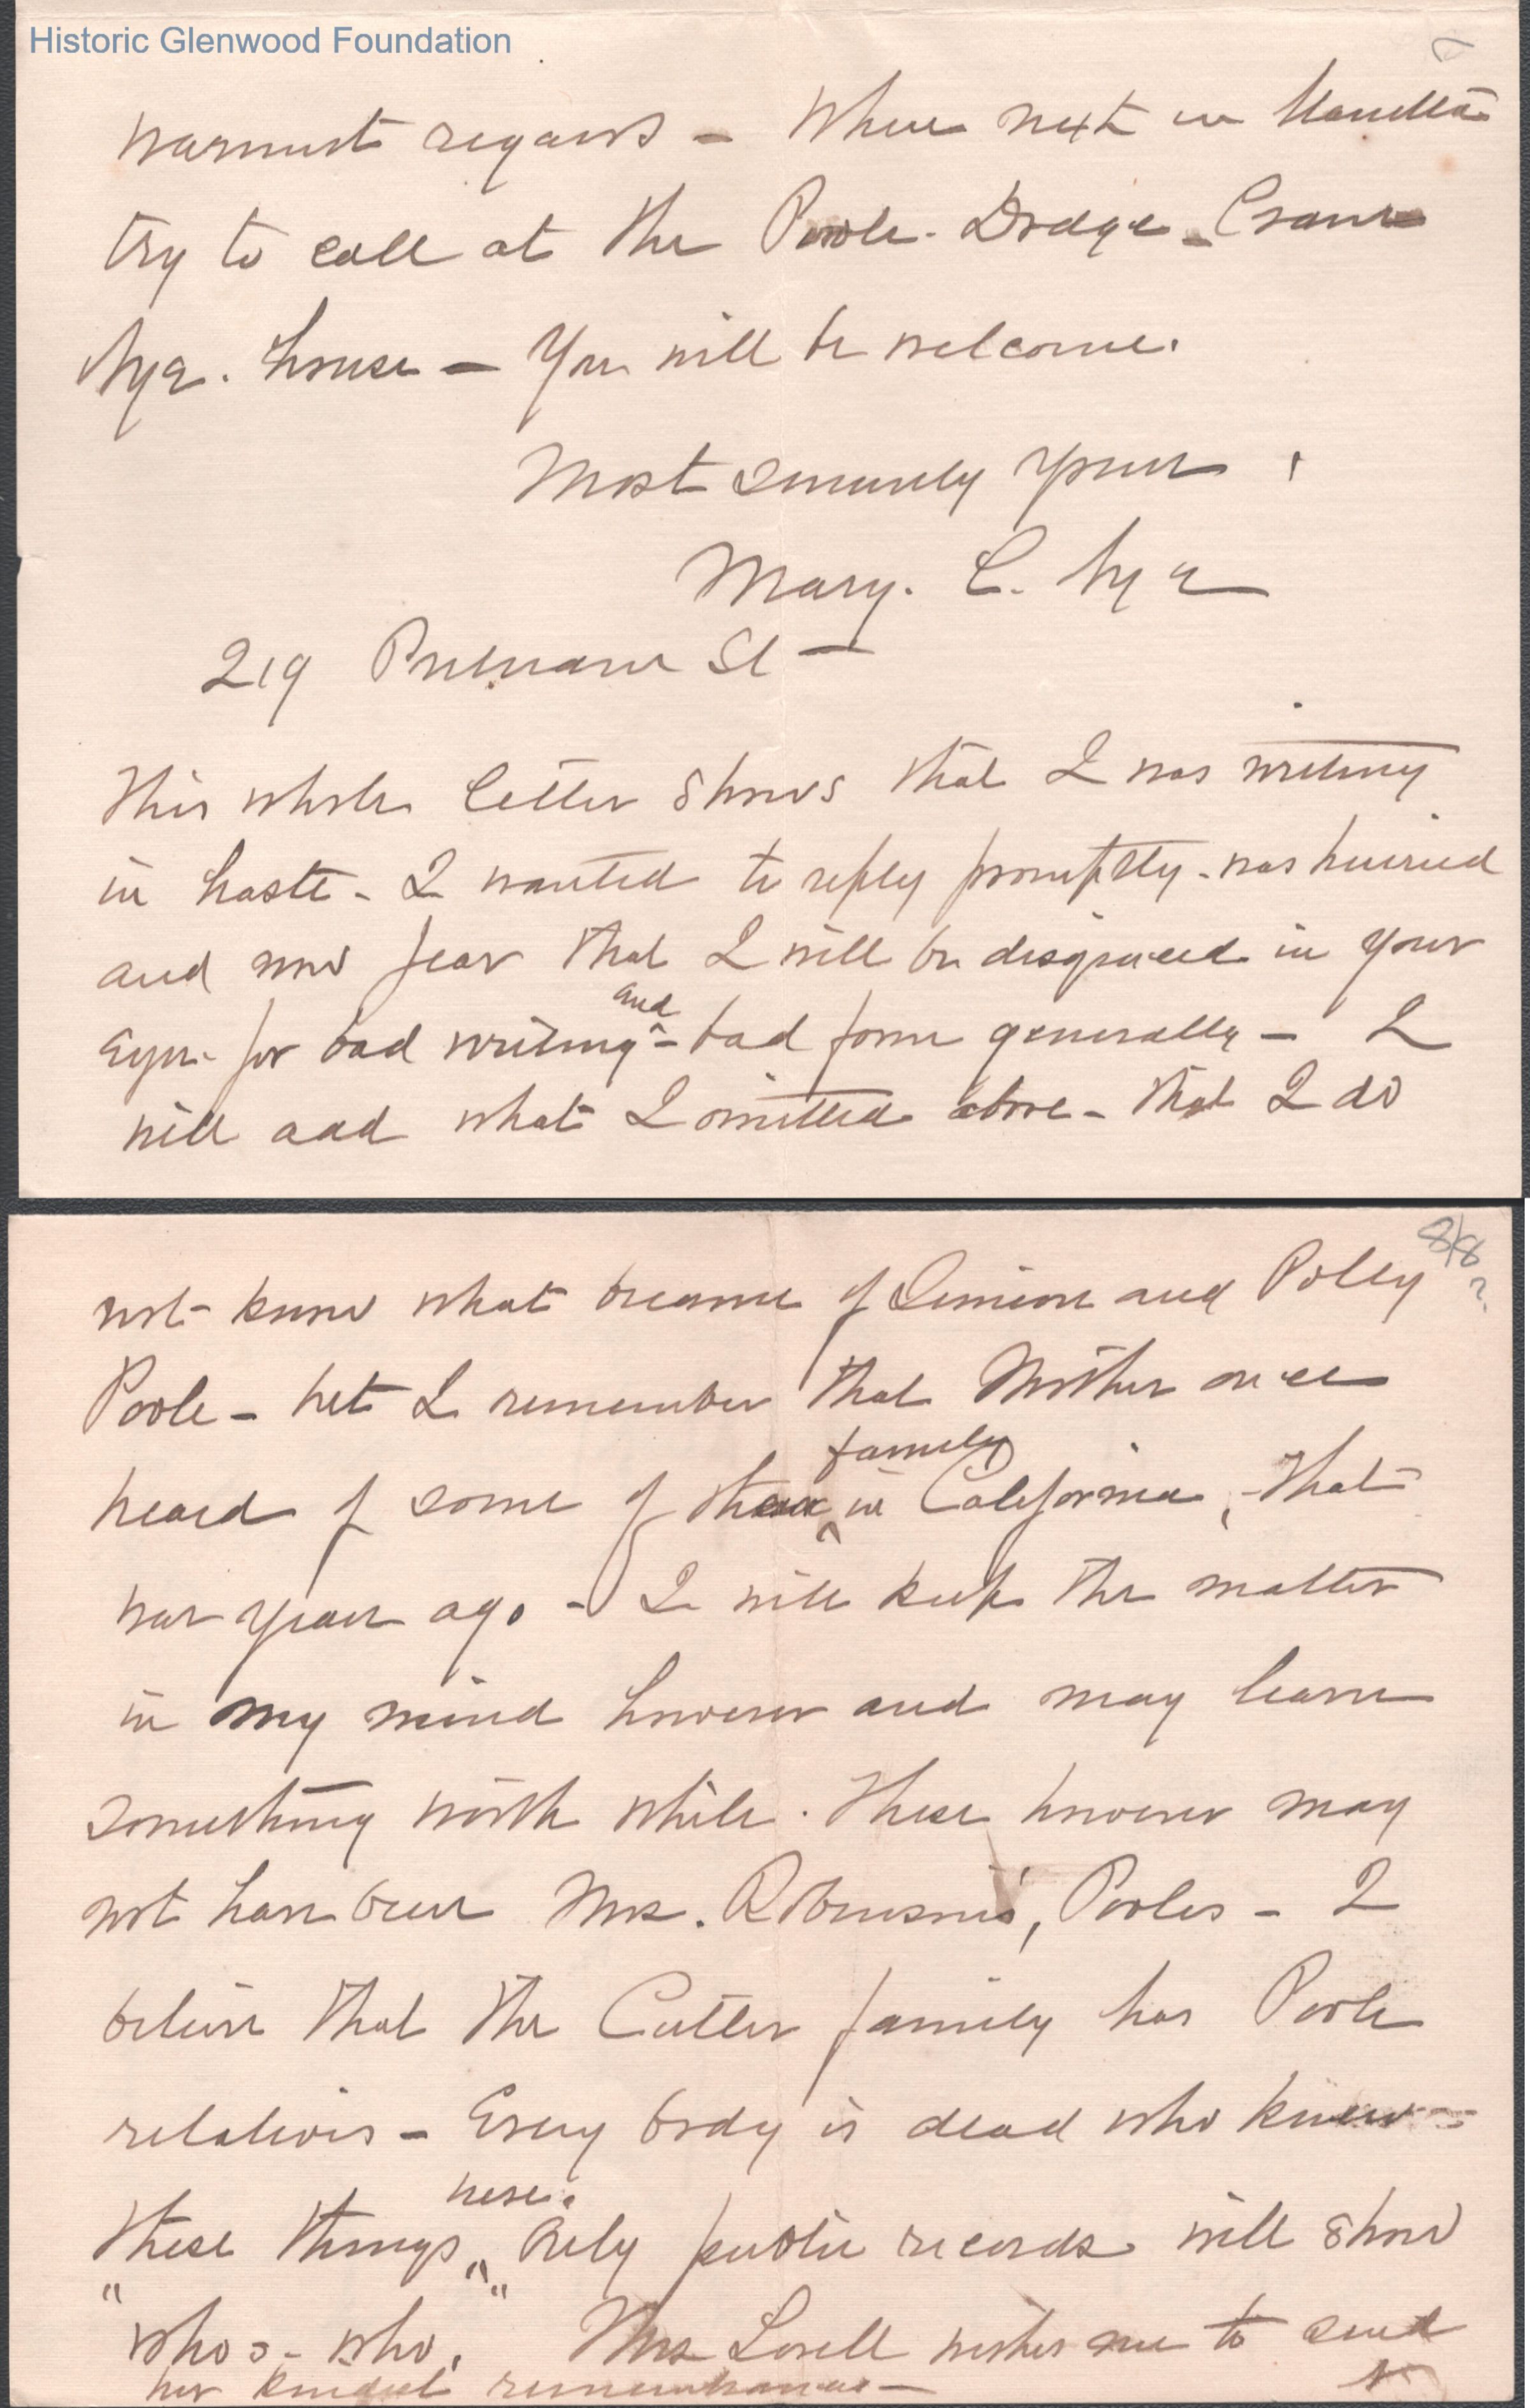 Historic Glenwood Foundation
warmest regards – When next in Marietta
try to call at the Poole-Dodge-Crane
Nye. house – You will be welcome.
Most sincerely yours,
Mary. C. Nye
219 Putnam St –
This whole letter shows that I was writing
in haste – I wanted to reply promptly – was hurried
and now fear that I will be disgraced in your
eyes for bad writing and – bad form generally – I
will add what I omitted above – that I do
8/8
?
not know what became of Simeon and Polly
Poole – but I remember that Mother once
heard of some of their family in California, – that
was years ago – I will keep the matter
in my mind however and may learn
something worth while. These however may
not have been Mrs. Robinson's, Pooles – I
believe that the Cutler family has Poole
relations – Every body is dead who knew –
these things here. Only public records will show
"whos – who." Mrs Lovell wishes me to send
her kindest remembrances –